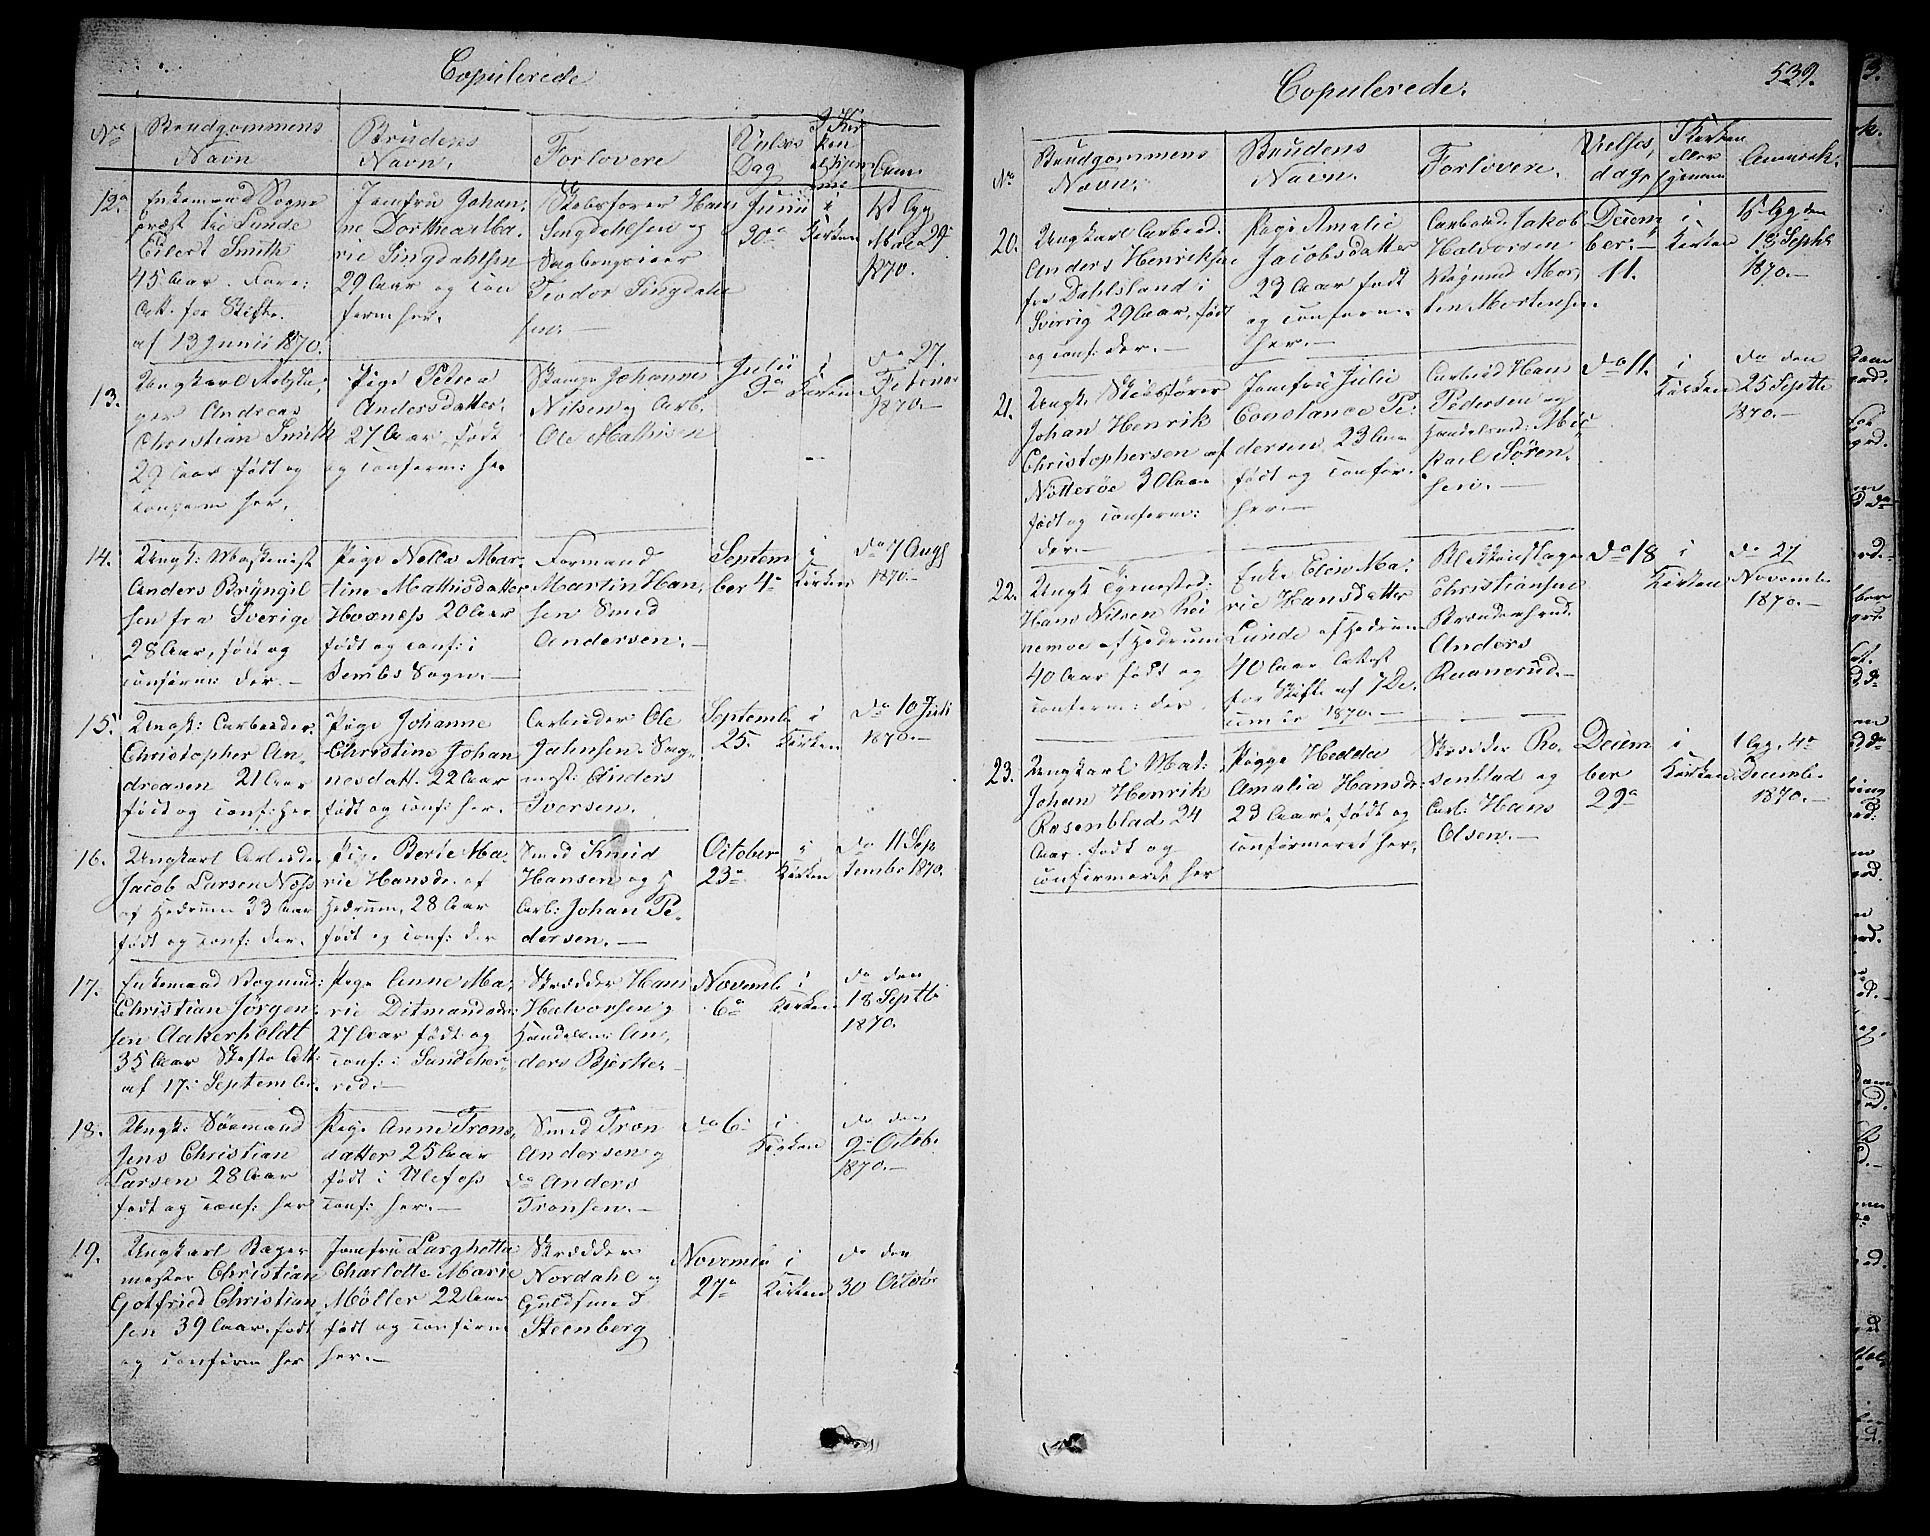 Copulerede
No
Brudgommens Navn
Brudens Navn.
Forlovere
Vielses Dag
12
Enkemand Sogne
præst til Lunde
Eilert Smith
45 Aar.
Att. for Skifte
af 13 Junii 1870.
Jomfru Johan-
ne Dorthea Ma-
rie Lingdahlsen
29 Aar og con
firm: her.
Skibsfører Hans
Lingdahlsen og
Teodor Lingdahl
sen.
Junii
30
i
Kirken
1st lyst
1870.
13.
Andreas
Christian Smith
29 Aar født og
conferm her.
Pige Petrea
Andersdatter.
27 Aar, født
og conferm: her
Johannes
Nilsen og Arb.
Ole Mathisen
Julii
3
i
Kirken
do 27.
Februar
1870.
14.
Ungk: Maskinist
Anders Bryngil
sen fra Sverige
28 Aar, født og
conferm: der.
Pige Nella Mar-
tine Mathisdatter
Hoxness 20 Aar
født og conf: i
Sembs Sogn.
Formand
Martin Han-
sen Smed
Andersen.
Septem
ber 4
i
Kirken
do 7 Aug
1870.
15.
Ungk: Arbeider
Christopher An-
dreasen 21 Aar
født og conf: her
Pige Johanne
Christine Johan
nesdatt: 22 Aar
født og conf: her.
Arbeider Ole
Anders
Iversen.
Septemb
25.
i
Kirken
do 10 Juli
1870.
16.
Ungkarl Arbeider
Jacob Larsen Næss
af Hedrum 33 Aar
født og conf: der.
Pige Berte Ma-
rie Hansd. af
Hedrum, 28 Aar
født og conf: der
Smed Knud
Hansen og
Arb: Johan Pe-
dersen.
October
23
i
Kirken
do 11 Sep
tember 1870.
17.
Enkemand Vognmd:
Christian Jørgen-
sen Aakerholdt
35 Aar Skifte Att:
af 17: Septembr.
Pige Anne Ma-
rie Ditmandsd:
27 Aar født og
conf: i Sandeher-
red.
Skrædder Hans
Halvorsen og
Handelsm: An-
ders Bjerke.
Novemb
6
i
Kirken
do den
18 Septb
1870.
18.
Ungk: Sømand
Jens Christian
Larsen 28 Aar
født og conf: her
Pige Anne Trons-
datter 25 Aar
født i Ulefoss
conf: her.
Smed Tron
Andersen og
do Anders
Tronsen.
do 6
i
Kirken
do den
9 Octob.
1870.
19.
Ungkarl Bager
mester Christian
Gotfried Christian
sen 39 Aar, født
og conferm her
Jomfru Larghetta
Charlotte Marie
Møller 22 Aar
født og conferm
her.
Skrædder
Nordahl og
Guldsmed
Steenberg
Novemb
27
i
Kirken
do den
30 Octobr
Copulerede.
539.
No
Brudgommens Navn.
Brudens Navn.
Forlovere.
Vielses dag.
I Kirken eller
Anmærk.
20.
Ungkarl Arbeid.
Anders Henriksen
fra Dahlsland i
Sverrig 29 Aar, født
og conf: der.
Pige Amalie
Jacobsdatter
23 Aar født
og conferm.
her.
Arbeid. Jakob
Halvorsen
Vognmd Mor-
ten Mortensen.
Decem
ber.
11.
i
Kirken
18 Septb
1870.
21.
Ungk. Skibsfører
Johan Henrik
Christophersen af
Nøtterøe 30 Aar
født og conferm:
der.
Jomfru Julie
Constance Pe-
dersen 23 Aar
født og confer.
her.
Arbeid Hans
Pedersen og
Handelsmd: Mic
kael Søren-
sen.
do 11.
i
Kirken
do den
25 Septb
1870.
22.
Ungk Tjenested:
Hans Nilsen
af Hedrum
40 Aar født og
conferm: der.
Enke Elen Ma-
rie Hansdatter
Lunde af Hedrum
40 Aar Attest
for Skifte af 7 De-
cember 1870.
Blikkenslager
Christiansen
Anders
Raanerud.
do 18
i
Kirken
do 27
November
1870.
23.
Ungkarl Mat:
Johan Henrik
Rosenblad 24
Aar født og
confirmeret her
Pige Hedda
Amalia Hansd:
23 Aar, født og
confirmeret her.
Skrædder Ro-
senblad og
Arb: Hans
Olsen.
Decem
ber
29
i
Kirken
1 lyg. 4
Decemb.
1870.